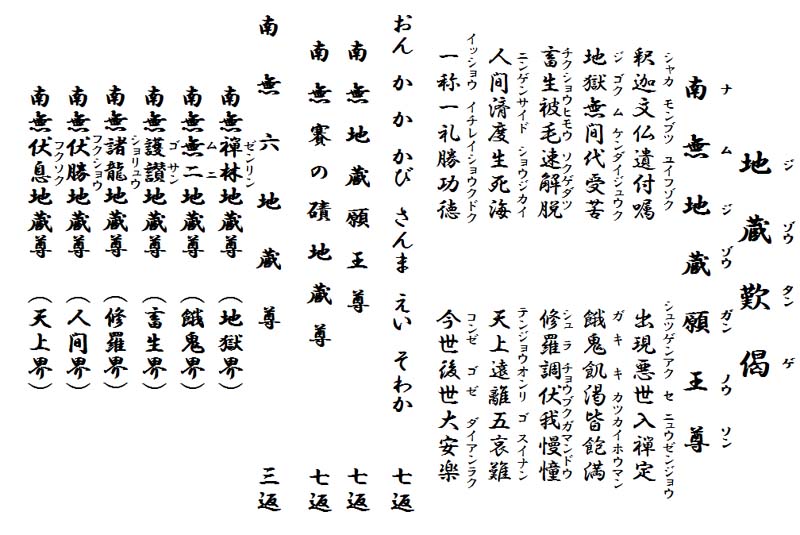 ジ ゾウ タン ゲ
地蔵歎偈
ナ ム ジ ゾウ ガン ノウ ソン
南無地蔵願王尊
シャカ モンブツ ユイフゾク シュツゲンアク セ ニュウゼンジョウ
釈迦文仏遺付嘱 出現悪世入禅定
ジ ゴク ム ケンダイジュウク ガ キ キ カツカイホウマン
地獄無間代受苦 餓鬼飢渇皆飽満
チクショウヒモウ ソクゲダツ シュ ラ チョウブクガマンドウ
畜生被毛速解脱 修羅調伏我慢幢
ニンゲンサイド ショウジカイ テンジョウオンリ ゴ スイナン
人间済度生死海 天上遠離五衰難
イッショウ イチレイショウクドク コンゼ ゴ ゼ ダイアンラク
一称一礼勝功徳 今世後世大安楽
おん か か かび さんま えい そわか 七返
南無地蔵願王尊 七返
南無賽の磧地蔵尊 七返
南無六地蔵尊 三返
ゼンリン
南無禅林地蔵尊 (地獄界)
ム ニ
南無無二地蔵尊 (餓鬼界)
ゴ サン
南無護讃地蔵尊 (畜生界)
ショリュウ
南無諸龍地蔵尊 (修羅界)
フクショウ
南無伏勝地蔵尊 (人间界)
フクソク
南無伏息地蔵尊 (天上界)